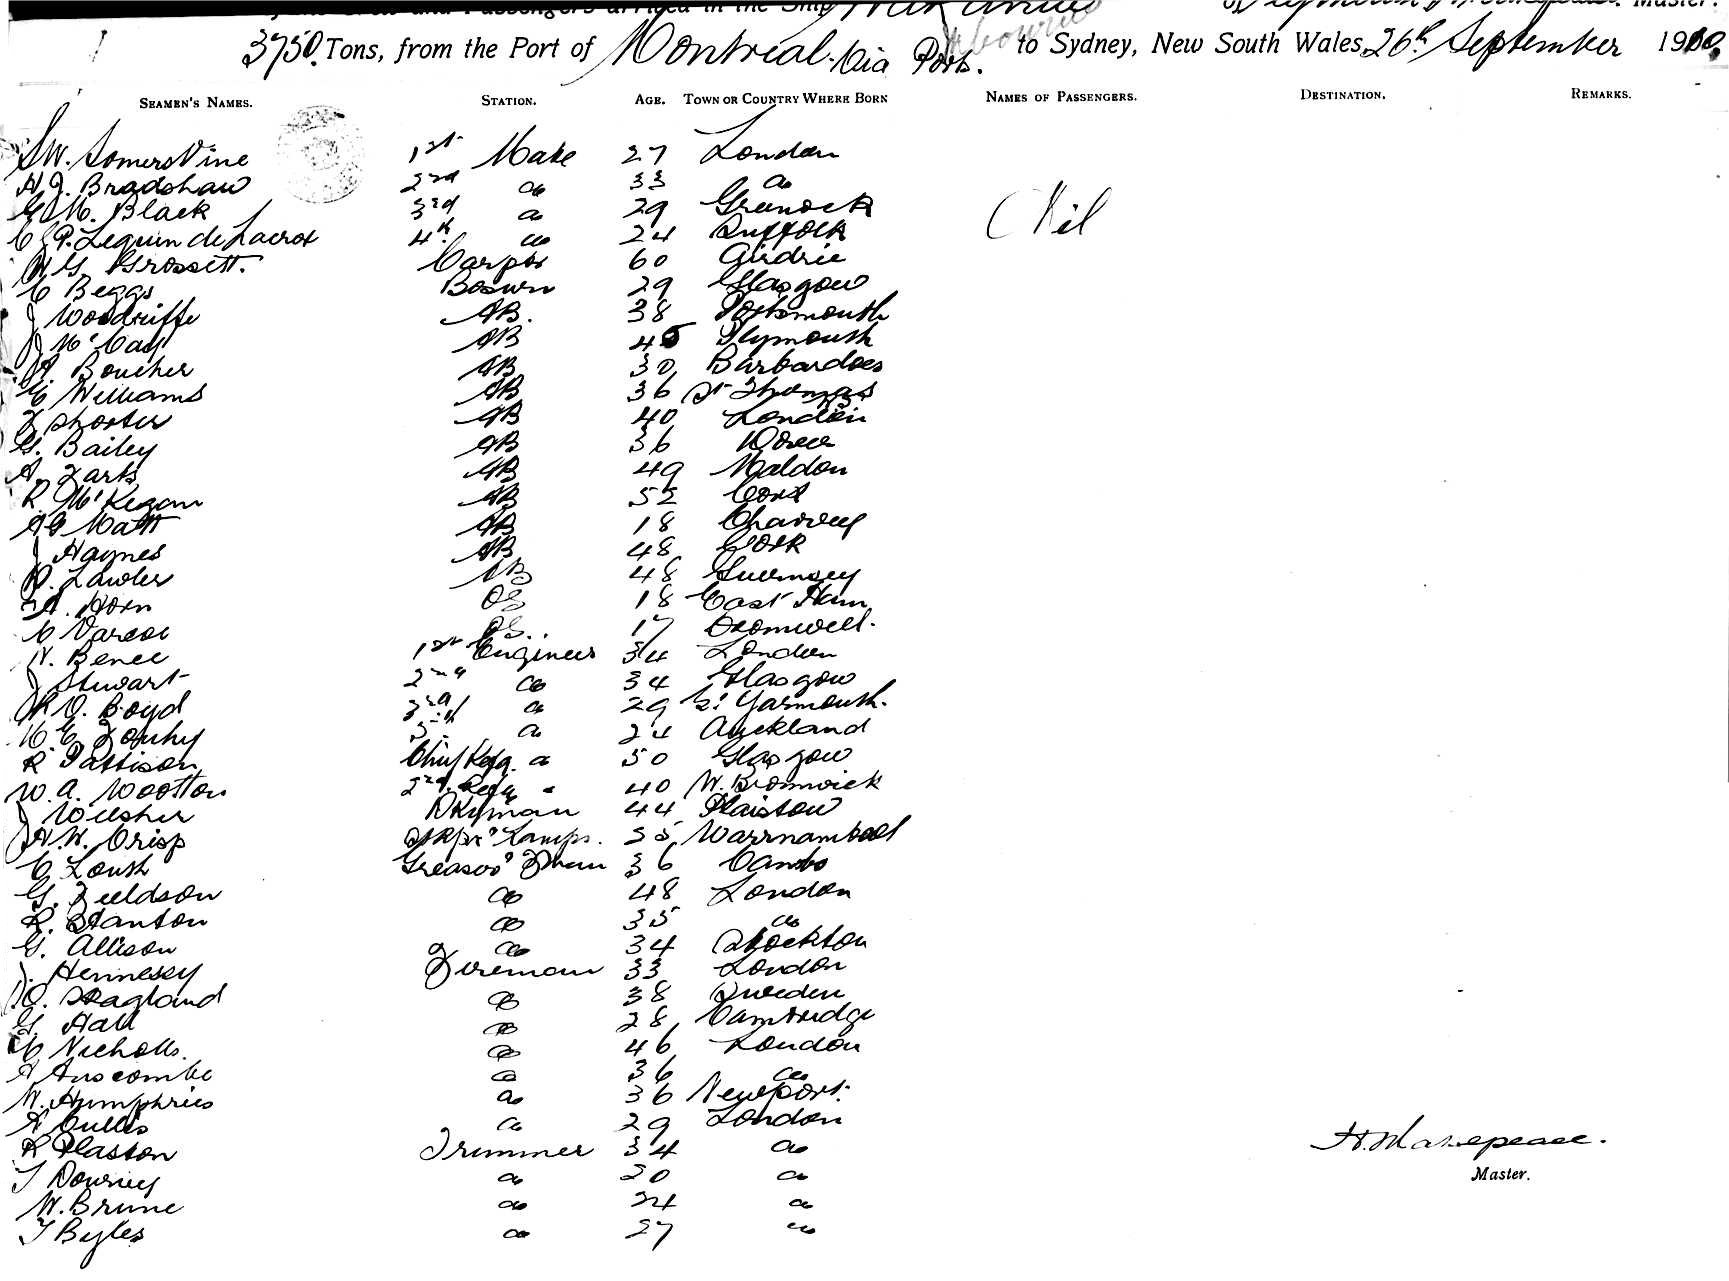 and Passengers arrived in the Ship Master.
3750 Tons, from the Port of Montreal via Ports. to Sydney, New South Wales, 26th September 1910
SEAMEN'S NAMES. STATION. AGE. TOWN OR COUNTRY WHERE BORN NAMES OF PASSENGERS. DESTINATION. REMARKS.
S W. Somers Vine 1st Mate 27 London
H J. Bradshaw 2nd do 33 do
G M. Black 3rd do 29 Greenock Nil
4th do 24 Suffolk
H G Grossett. Carptr 60 Airdrie
C Beggs Bosun 29 Glasgow
J Woodriffe AB. 38 Portsmouth
J McCay AB 45 Plymouth
A Boucher AB 30 Barbardoes
E Williams AB 36 St Thomas
F Shorter AB 40 London
G. Bailey AB 36 Dover
A. Farts AB 49 Maldon
R. McKegan AB 52 Cork
A G Matt AB 18
J Haynes AB 48 Cork
P. Lawler AB 48 Guernsey
A. Horn OS 18 East Ham
C Varcoe OS. 17 Bromwell.
H. Benee 1st Engineer 34 London
J Stewart 2nd do 34 Glasgow
R O. Boyd 3rd do 29 Gt Yarmouth.
do 24 Auckland
R Pattison Chief Refg. do 50 Glasgow
W. A. Wootton 2nd Refg do 40 W. Bromwich
J Welsher Dkyman 44 Plaistow
H. W. Crisp Stkpr & Lamps. 55 Warrnambool
C Louth Greaser & Fman 36 Cambs
G. Fieldson do 48 London
R. Stanton do 35 do
G. Allison do 34 Stockton
J. Hennesey Fireman 33 London
O. Hagland do 38 Sweden
G. Hall do 28 Cambridge
C Nicholls. do 46 London
A Anscombe do 36 do
W. Humphries do 36 Newport.
A Cullis do 29 London
R Plaston Trimmer 34 do
H. Makepeace.
Master.
T Downey do 30 do
W. Brune do 24 do
T Byles do 27 do